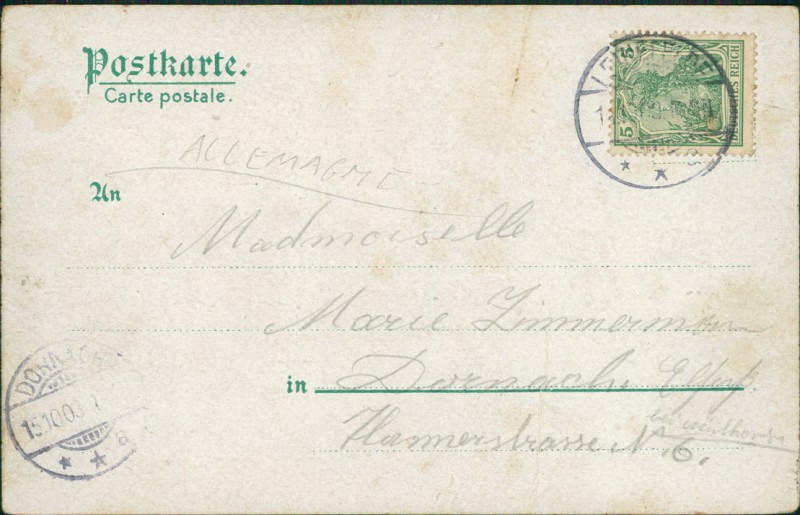 Postkarte.
Carte postale.
5
DEUTSCHES REICH
ALLEMAGNE
An
Madmoiselle
Marie Zimmermann
in Dornach Elsass.
bei Mulhouse
Hamerstrasse N. 6.
DORNACH
15.10.03
a